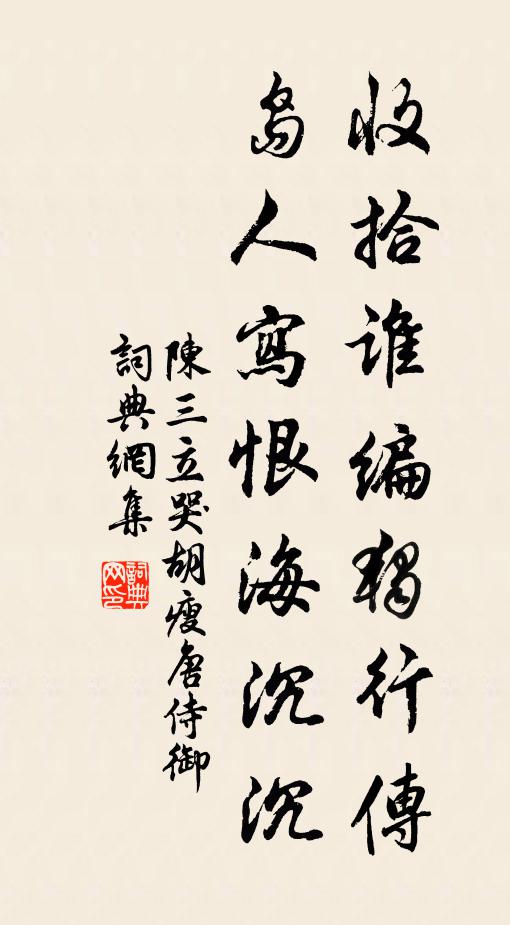 收拾誰編獨行傳
島人寫恨海沉沉
陳三立哭胡瘦唐侍御
詞典網集
詞典网印